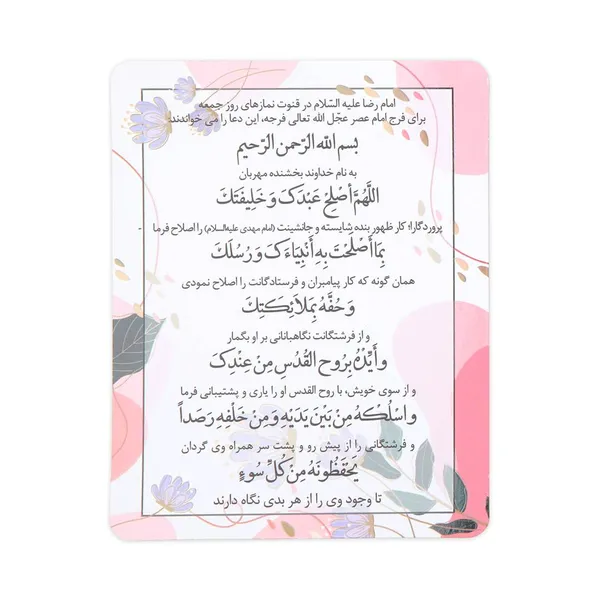 امام رضا علیه السّلام در قنوت نمازهای روز جمعه
برای فرج امام عصر عجّل الله تعالی فرجه، این دعا را می خواندند:
بسم الله الرّحمن الرّحیم
به نام خداوند بخشنده مهربان
اللَّهُمَّ أَصْلِحْ عَبْدَکَ وَ خَلِیفَتَکَ
پروردگارا؛ کار ظهور بنده شایسته و جانشینت (امام مهدی علیه‌السلام) را اصلاح فرما -
بِمَا أَصْلَحْتَ بِهِ أَنْبِیَاءَکَ وَ رُسُلَکَ
همان گونه که کار پیامبران و فرستادگانت را اصلاح نمودی
وَ حُفَّهُ بِمَلَائِکَتِکَ
و از فرشتگانت نگاهبانانی بر او بگمار
وَ أَیِّدْهُ بِرُوحِ القُدُسِ مِنْ عِنْدِکَ
و از سوی خویش، با روح القدس او را یاری و پشتیبانی فرما
وَ اسْلُکْهُ مِنْ بَیْنِ یَدَیْهِ وَ مِنْ خَلْفِهِ رَصَداً
و فرشتگانی را از پیش رو و پشت سر همراه وی گردان
یَحْفَظُونَهُ مِنْ کُلِّ سُوءٍ
تا وجود وی را از هر بدی نگاه دارند